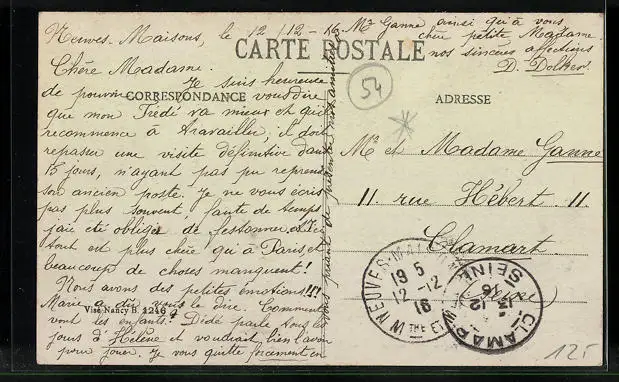 Neuves-Maisons, le 12/12-16
CARTE POSTALE
CORRESPONDANCE
ADRESSE
Chère Madame.
Je suis heureuse
de pouvoir vous dire
que mon Dédé va mieux et qu'il
recommence à travailler; il doit
repasser une visite définitive dans
15 jours, n'ayant pas pu reprendre
son ancien poste. Je ne vous écris
pas plus souvent, faute de temps
j'ai été obligée de festonner. Ici
tout est plus chère qu'à Paris, et
beaucoup de choses manquent!
Nous avons des petites émotions!!!
Marie a dû vous le dire. Comment
vont les enfants? Dédé parle tous les
jours d'Hélène et voudrait bien l'avoir
pour jouer. Je vous quitte forcément en
vous priant de présenter nos amitiés à
Mr Ganne ainsi qu'à vous
chère petite Madame
nos sincères affections
D.
54
Mr et Madame Ganne
11 rue Hébert 11
Clamart
Seine
NEUVES-MAISONS
19 5
12-12
16
Mthe et Mlle
CLAMART
SEINE
16
12
Visé Nancy B. 1246
12F